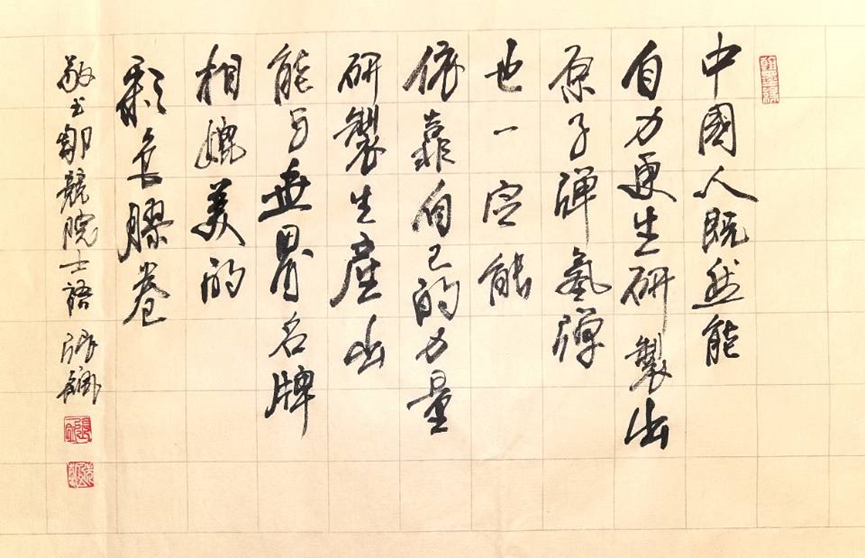 中國人既然能
自力更生研製出
原子彈氫彈
也一定能
依靠自己的力量
研製生產出
能与世界名牌
相媲美的
彩色膠卷
敬书鄒競院士語 张鏑